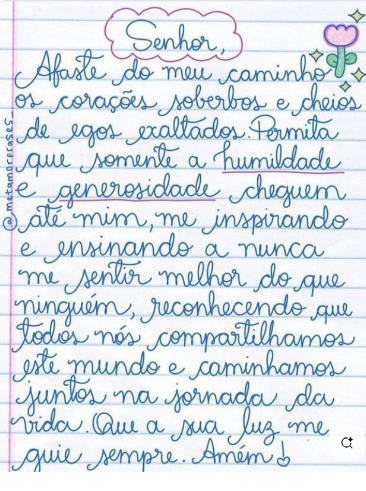 Senhor,
Afaste do meu caminho
os corações soberbos e cheios
de egos exaltados. Permita
que somente a humildade
e generosidade cheguem
até mim, me inspirando
e ensinando a nunca
me sentir melhor do que
ninguém, reconhecendo que
todos nós compartilhamos
este mundo e caminhamos
juntos na jornada da
vida. Que a sua luz me
guie sempre. Amém
@metamorfcases_